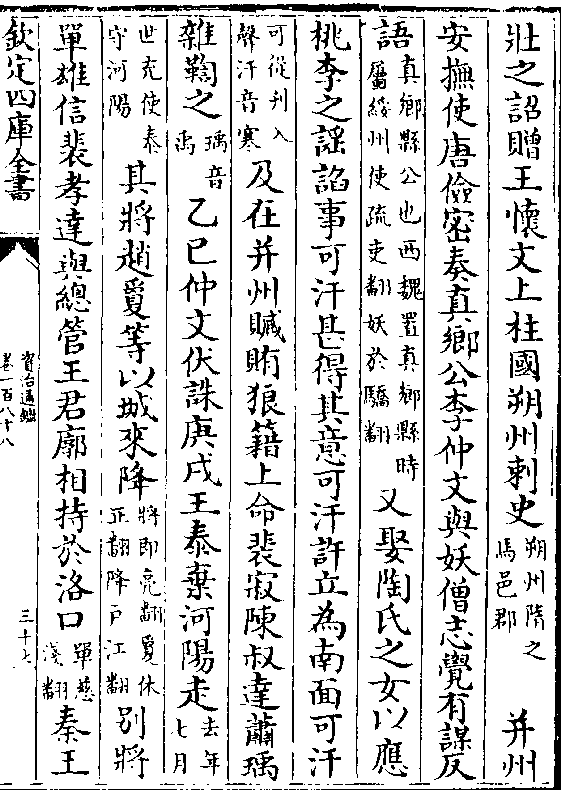 壯之詔贈王懷文上柱國朔州刺史朔州隋之馬邑郡 并州
安撫使唐儉密奏真鄉公李仲文與妖僧志覺有謀反
語真鄉縣公也西魏置真鄉縣時屬綏州使疏吏翻妖於驕翻又娶陶氏之女以應
桃李之謡諂事可汗甚得其意可汗許立為南面可汗
可從刋入聲汗音寒及在并州贓賄狼籍上命裴寂陳叔達蕭瑀
雜鞫之瑀音禹乙巳仲文伏誅庚戌王泰棄河陽走去年七月
世充使泰守河陽其將趙夐等以城來降將即亮翻夐休正翻降戶江翻别將
單雄信裴孝達與總管王君廓相持於洛口單慈淺翻秦王
欽定四庫全書
資治通鑑
卷一百八十八
三十七